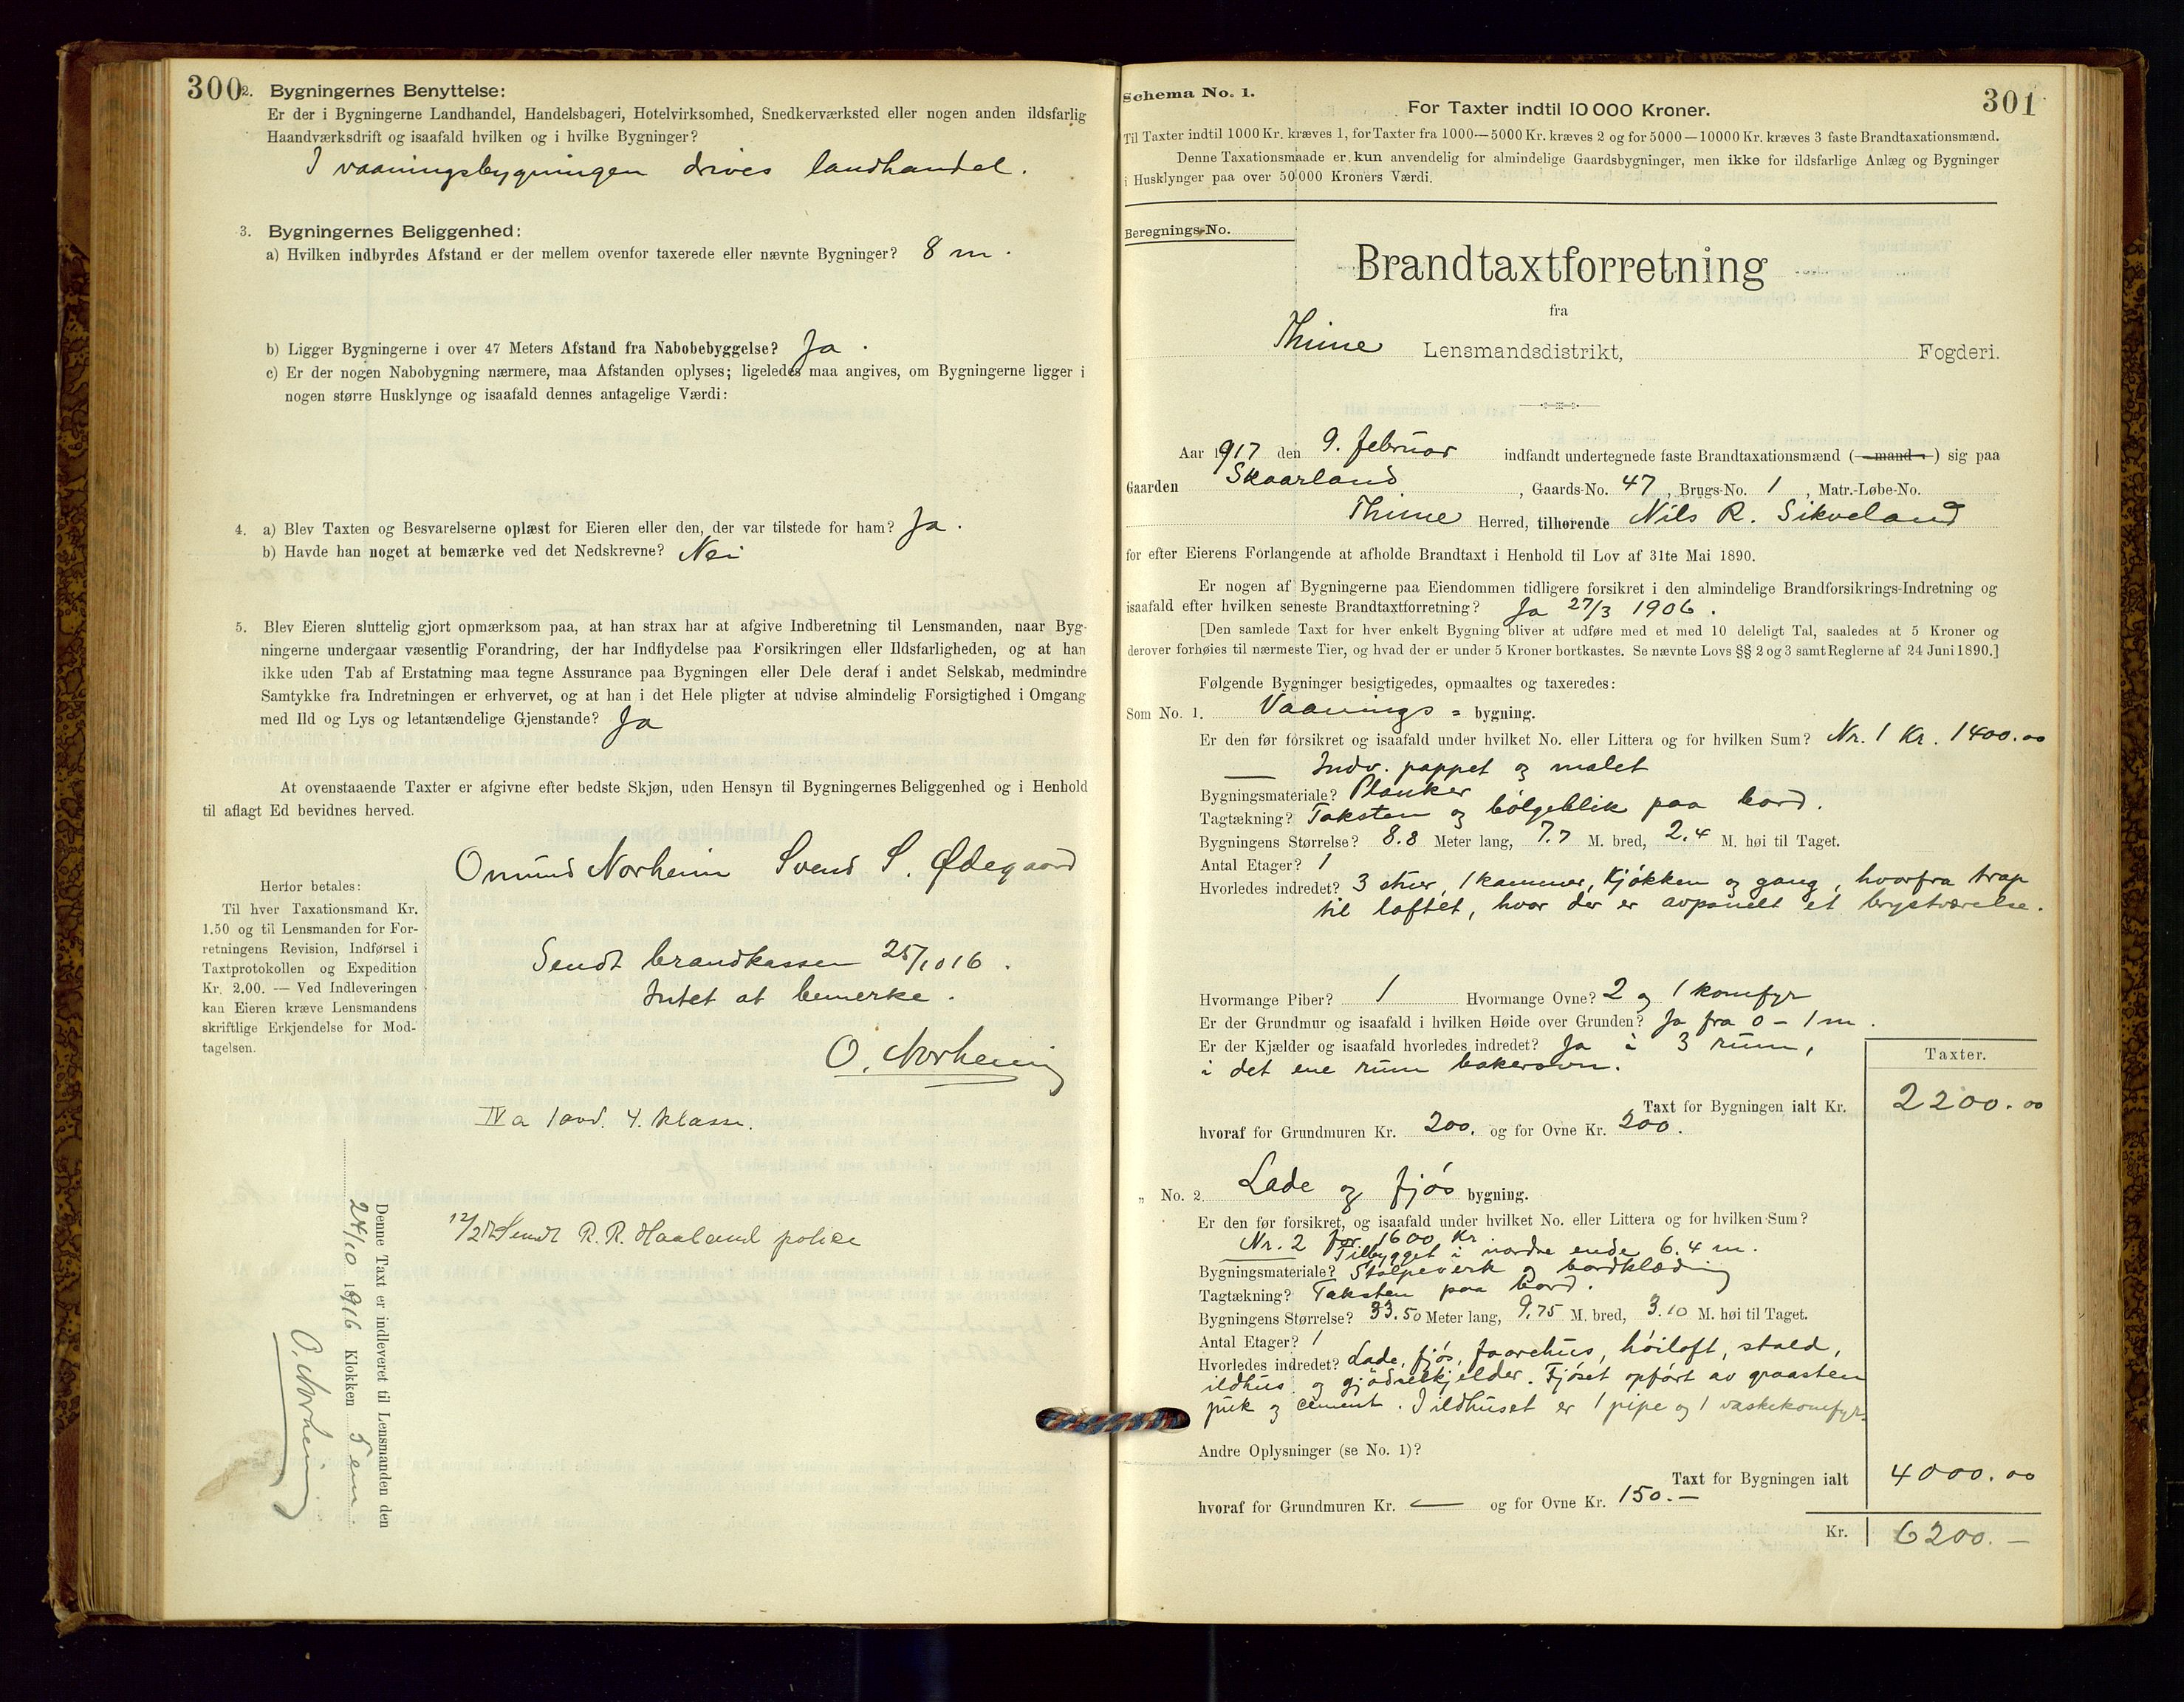 300
2. Bygningernes Benyttelse:
Er der i Bygningerne Landhandel, Handelsbageri, Hotelvirksomhed, Snedkerværksted eller nogen anden ildsfarlig
Haandværksdrift og isaafald hvilken og i hvilke Bygninger?
I vaaningsbygningen drives landhandel.
3. Bygningernes Beliggenhed:
a) Hvilken indbyrdes Afstand er der mellem ovenfor taxerede eller nævnte Bygninger? 8 m.
b) Ligger Bygningerne i over 47 Meters Afstand fra Nabobebyggelse? Ja.
c) Er der nogen Nabobygning nærmere, maa Afstanden oplyses; ligeledes maa angives, om Bygningerne ligger i
nogen større Husklynge og isaafald dennes antagelige Værdi:
4. a) Blev Taxten og Besvarelserne oplæst for Eieren eller den, der var tilstede for ham? Ja.
b) Havde han noget at bemærke ved det Nedskrevne? Nei
5. Blev Eieren sluttelig gjort opmærksom paa, at han strax har at afgive Indberetning til Lensmanden, naar Byg-
ningerne undergaar væsentlig Forandring, der har Indflydelse paa Forsikringen eller Ildsfarligheden, og at han
ikke uden Tab af Erstatning maa tegne Assurance paa Bygningen eller Dele deraf i andet Selskab, medmindre
Samtykke fra Indretningen er erhvervet, og at han i det Hele pligter at udvise almindelig Forsigtighed i Omgang
med Ild og Lys og letantændelige Gjenstande? Ja
At ovenstaaende Taxter er afgivne efter bedste Skjøn, uden Hensyn til Bygningernes Beliggenhed og i Henhold
til aflagt Ed bevidnes herved.
Omund Norheim Svend S. Ødegaard
Herfor betales:
Til hver Taxationsmand Kr.
1.50 og til Lensmanden for For-
retningens Revision, Indførsel i
Taxtprotokollen og Expedition
Kr. 2.00. — Ved Indleveringen
kan Eieren kræve Lensmandens
skriftlige Erkjendelse for Mod-
tagelsen.
Sendt brandkassen 25/10 16.
Intet at bemerke.
O. Norheim
IV a 1 avd. 4. klasse.
Sendt R. R. Haaland police
Denne Taxt er indleveret til Lensmanden den
24/10 1916 Klokken 5 em
O. Norheim
301
Schema No. 1.
For Taxter indtil 10 000 Kroner.
Til Taxter indtil 1000 Kr. kræves 1, for Taxter fra 1000—5000 Kr. kræves 2 og for 5000—10000 Kr. kræves 3 faste Brandtaxationsmænd.
Denne Taxationsmaade er kun anvendelig for almindelige Gaardsbygninger, men ikke for ildsfarlige Anlæg og Bygninger
i Husklynger paa over 50 000 Kroners Værdi.
Beregnings-No.
Brandtaxtforretning
fra
Thime Lensmandsdistrikt, Fogderi.
Aar 1917 den 9. februar indfandt undertegnede faste Brandtaxationsmænd (-mand-) sig paa
Gaarden Skaarland, Gaards-No. 47, Brugs-No. 1, Matr.-Løbe-No.
Thime Herred, tilhørende Nils R. Sikveland
for efter Eierens Forlangende at afholde Brandtaxt i Henhold til Lov af 31te Mai 1890.
Er nogen af Bygningerne paa Eiendommen tidligere forsikret i den almindelige Brandforsikrings-Indretning og
isaafald efter hvilken seneste Brandtaxtforretning? Ja 27/3 1906.
[Den samlede Taxt for hver enkelt Bygning bliver at udføre med et med 10 deleligt Tal, saaledes at 5 Kroner og
derover forhøies til nærmeste Tier, og hvad der er under 5 Kroner bortkastes. Se nævnte Lovs §§ 2 og 3 samt Reglerne af 24 Juni 1890.]
Følgende Bygninger besigtigedes, opmaaltes og taxeredes:
Som No. 1. Vaanings- bygning.
Er den før forsikret og isaafald under hvilket No. eller Littera og for hvilken Sum? Nr. 1 Kr. 1400.00
Indv. pappet og malet
Bygningsmateriale? Planker
Tagtækning? Taksten og bölgeblik paa bord.
Bygningens Størrelse? 8.8 Meter lang, 7.7 M. bred, 2.4 M. høi til Taget.
Antal Etager? 1
Hvorledes indredet? 3 stuer, 1 kammer, kjökken og gang, hvorfra trap
til loftet, hvor der er avpanelt et brystværelse.
Hvormange Piber? 1 Hvormange Ovne? 2 og 1 komfyr
Er der Grundmur og isaafald i hvilken Høide over Grunden? Ja fra 0 - 1 m.
Er der Kjælder og isaafald hvorledes indredet? Ja i 3 rum,
i det ene rum bakerovn.
Taxter.
Taxt for Bygningen ialt Kr. 2200.00
hvoraf for Grundmuren Kr. 200. og for Ovne Kr. 200.
„ No. 2 Lade og fjös bygning.
Er den før forsikret, og isaafald under hvilket No. eller Littera og for hvilken Sum?
Nr. 2 for 1600 Kr.
Tilbygget i nordre ende 6.4 m.
Bygningsmateriale? Stolpeverk og bordklædning
Tagtækning? Taksten paa bord.
Bygningens Størrelse? 33.50 Meter lang, 9.75 M. bred, 3.10 M. høi til Taget.
Antal Etager? 1
Hvorledes indredet? Lade, fjös, faarehus, höiloft, stald,
ildhus og gjödselkjelder. Fjöset opfört av graasten
puk og cement. I ildhuset er 1 pipe og 1 vaskekomfyr
Andre Oplysninger (se No. 1)?
Taxt for Bygningen ialt 4000.00
hvoraf for Grundmuren Kr. — og for Ovne Kr. 150.-
Kr. 6200.-